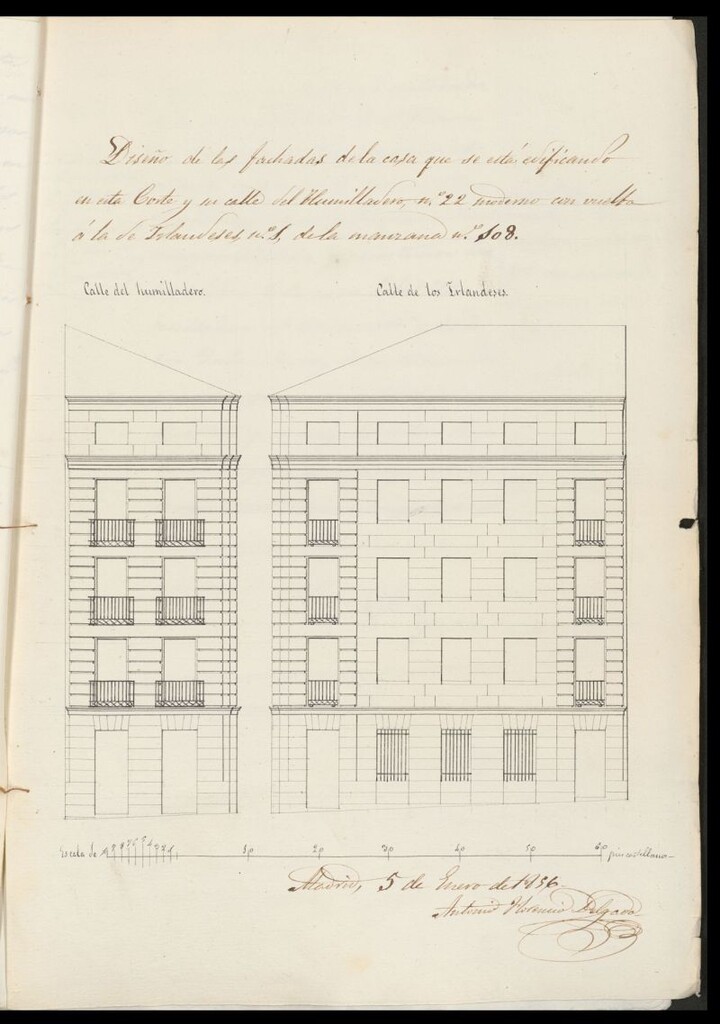 Diseño de las fachadas de la casa que se está edificando
en esta Corte y su calle del Humilladero, n.º 22 moderno con vuelta
á la de Irlandeses, n.º 1, de la manzana n.º 108.
Calle del humilladero.
Calle de los Irlandeses.
Escala de 10 9 8 7 6 5 4 3 2 1 10 20 30 40 50 60 pies castellanos
Madrid, 5 de Enero de 1856.
Antonio Florencio Delgado